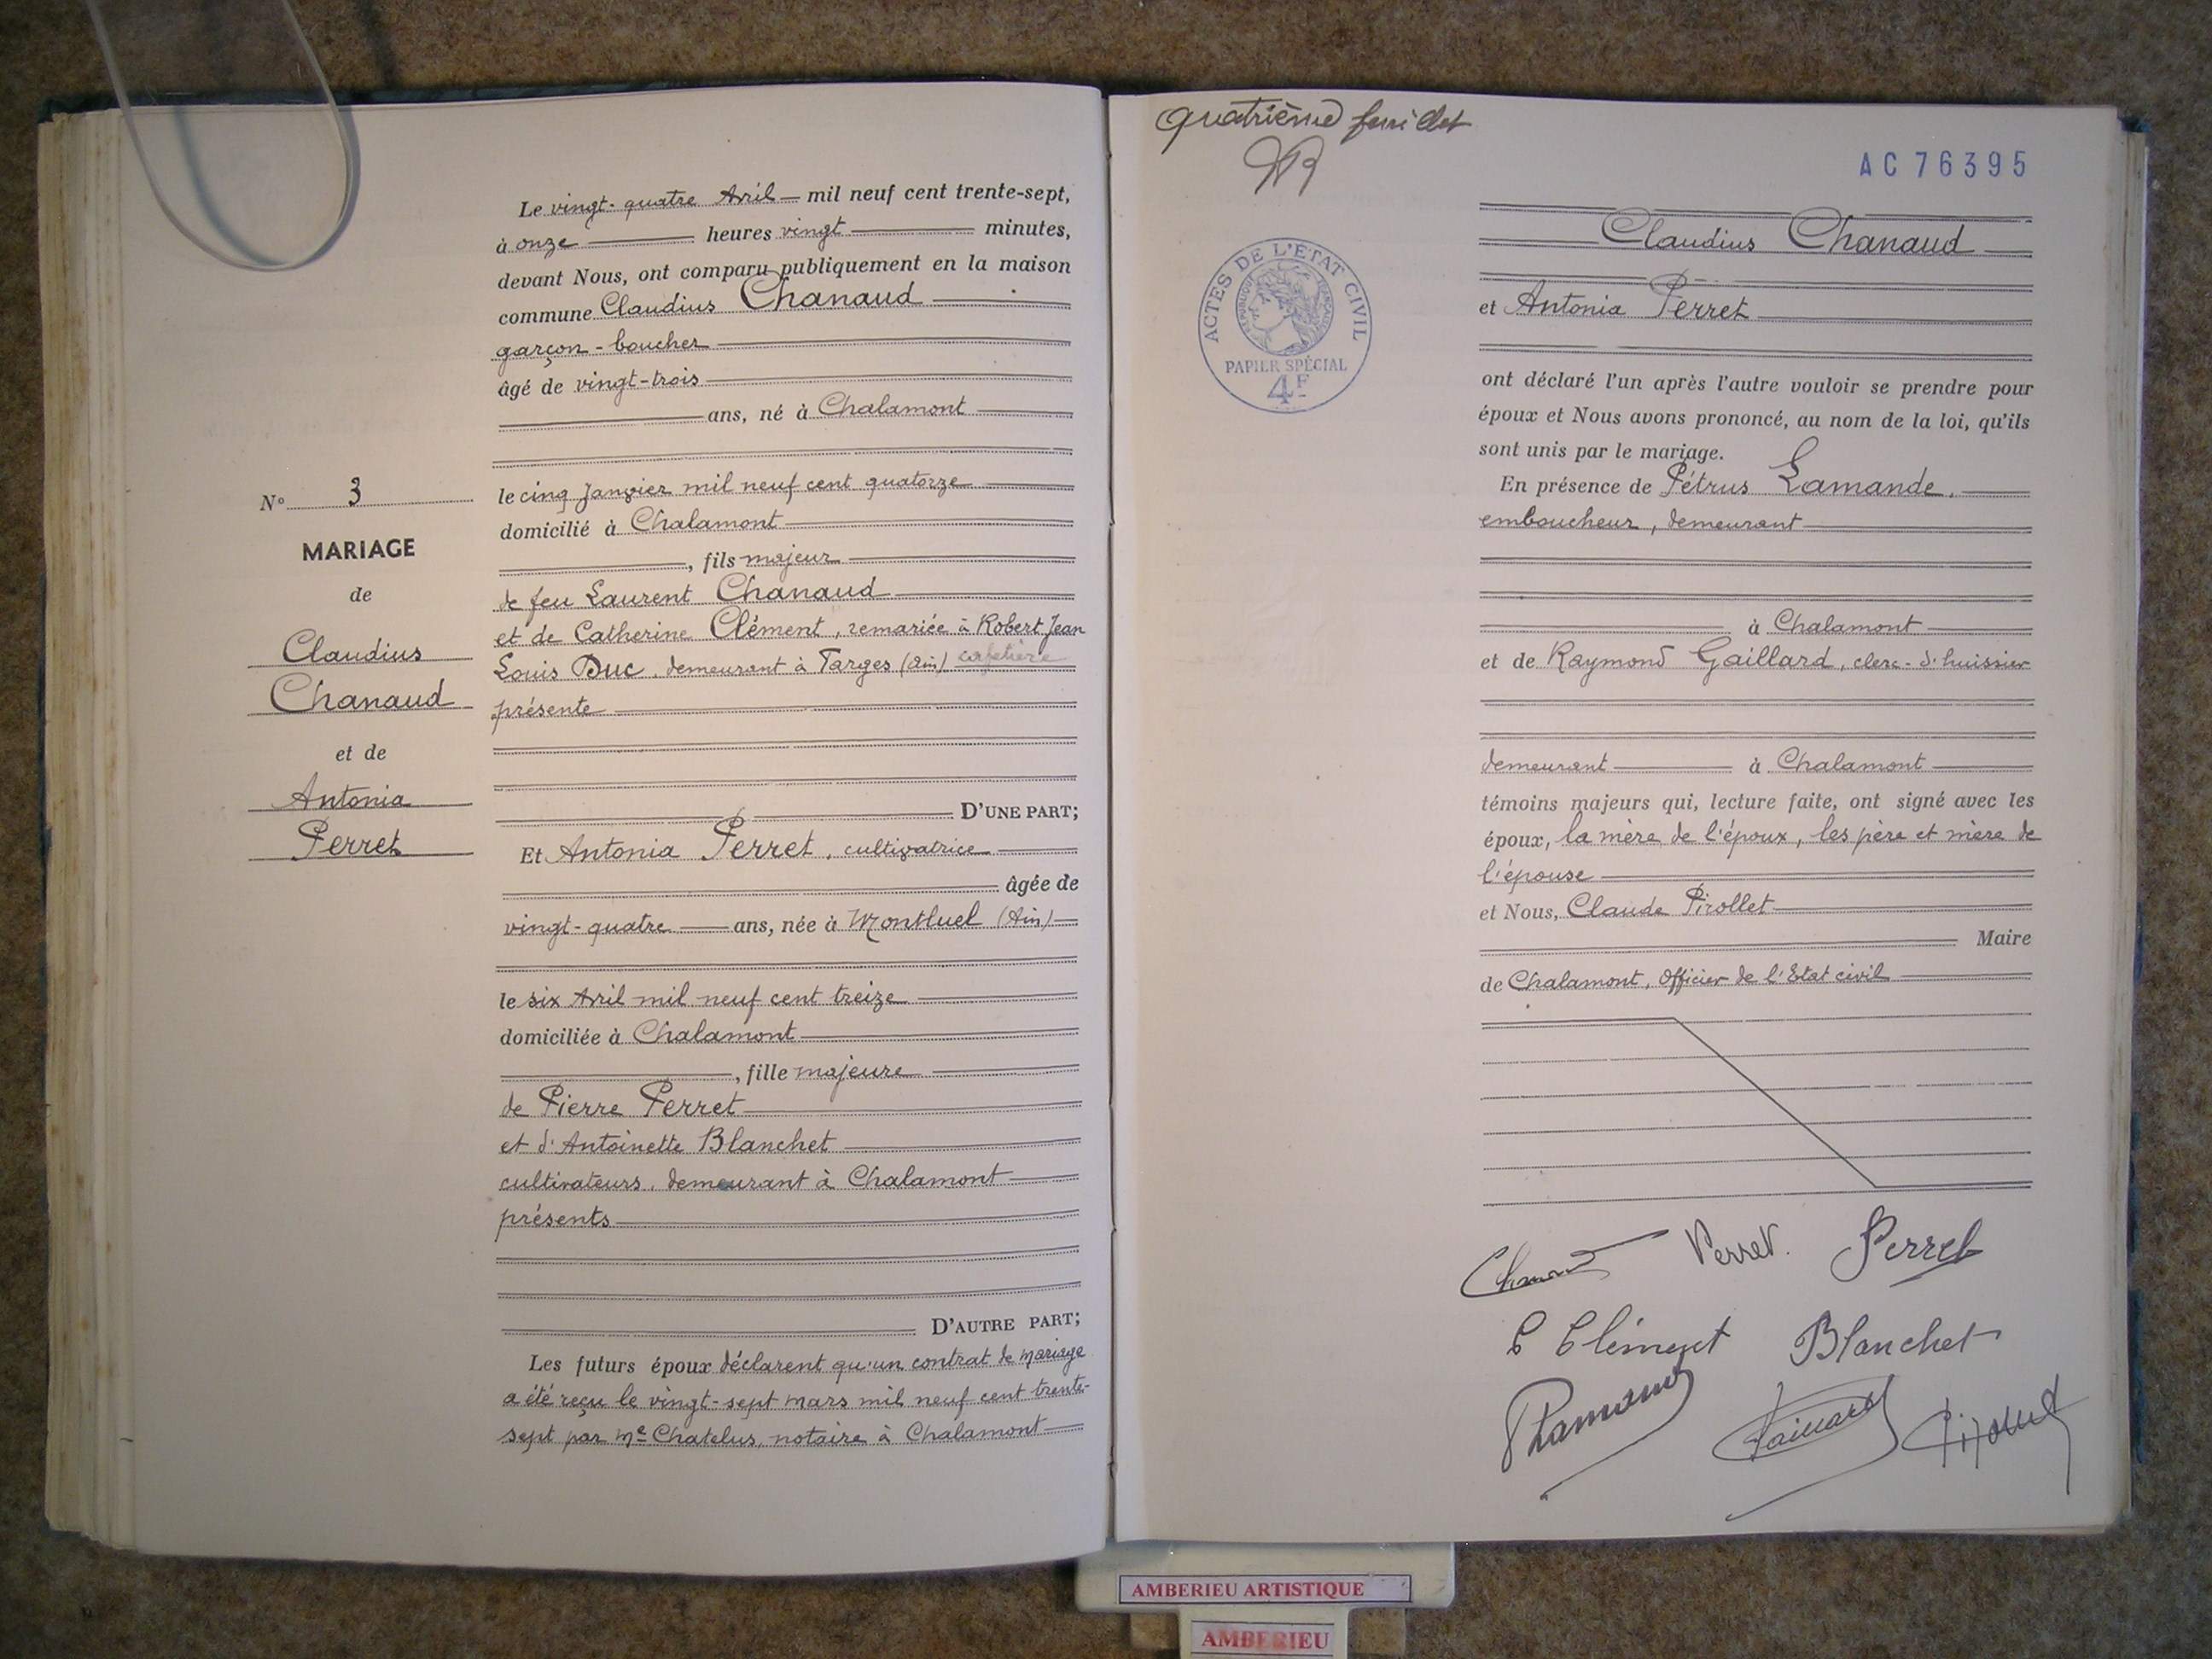 Le vingt-quatre Avril mil neuf cent trente-sept,
à onze heures vingt minutes,
devant Nous, ont comparu publiquement en la maison
commune Claudius Chanaud
garçon-boucher
âgé de vingt-trois
ans, né à Chalamont
N° 3
le cinq Janvier mil neuf cent quatorze
domicilié à Chalamont
MARIAGE
, fils majeur
de
de feu Laurent Chanaud
et de Catherine Clément, remariée à Robert Jean
Claudius
Louis Duc, demeurant à Farges (Ain) cafetière
Chanaud
présente
et de
Antonia
D'UNE PART;
Perret
Et Antonia Perret, cultivatrice
âgée de
vingt-quatre ans, née à Montluel (Ain)
le six Avril mil neuf cent treize
domiciliée à Chalamont
, fille majeure
de Pierre Perret
et d'Antoinette Blanchet
cultivateurs, demeurant à Chalamont
présents
D'AUTRE PART;
Les futurs époux déclarent qu'un contrat de mariage
a été reçu le vingt-sept mars mil neuf cent trente-
sept par Me Chatelus, notaire à Chalamont
quatrième feuillet
AC 76395
ACTES DE L'ETAT CIVIL
REPUBLIQUE FRANÇAISE
PAPIER SPÉCIAL
4F
Claudius Chanaud
et Antonia Perret
ont déclaré l'un après l'autre vouloir se prendre pour
époux et Nous avons prononcé, au nom de la loi, qu'ils
sont unis par le mariage.
En présence de Pétrus Lamande,
emboucheur, demeurant
à Chalamont
et de Raymond Gaillard, clerc-d'huissier
demeurant à Chalamont
témoins majeurs qui, lecture faite, ont signé avec les
époux, la mère de l'époux, les père et mère de
l'épouse
et Nous, Claude Pirollet
Maire
de Chalamont, Officier de l'Etat civil
Chanaud Perret. Perret
C Clément Blanchet
PLamande Gaillard Pirollet
AMBERIEU ARTISTIQUE
AMBERIEU